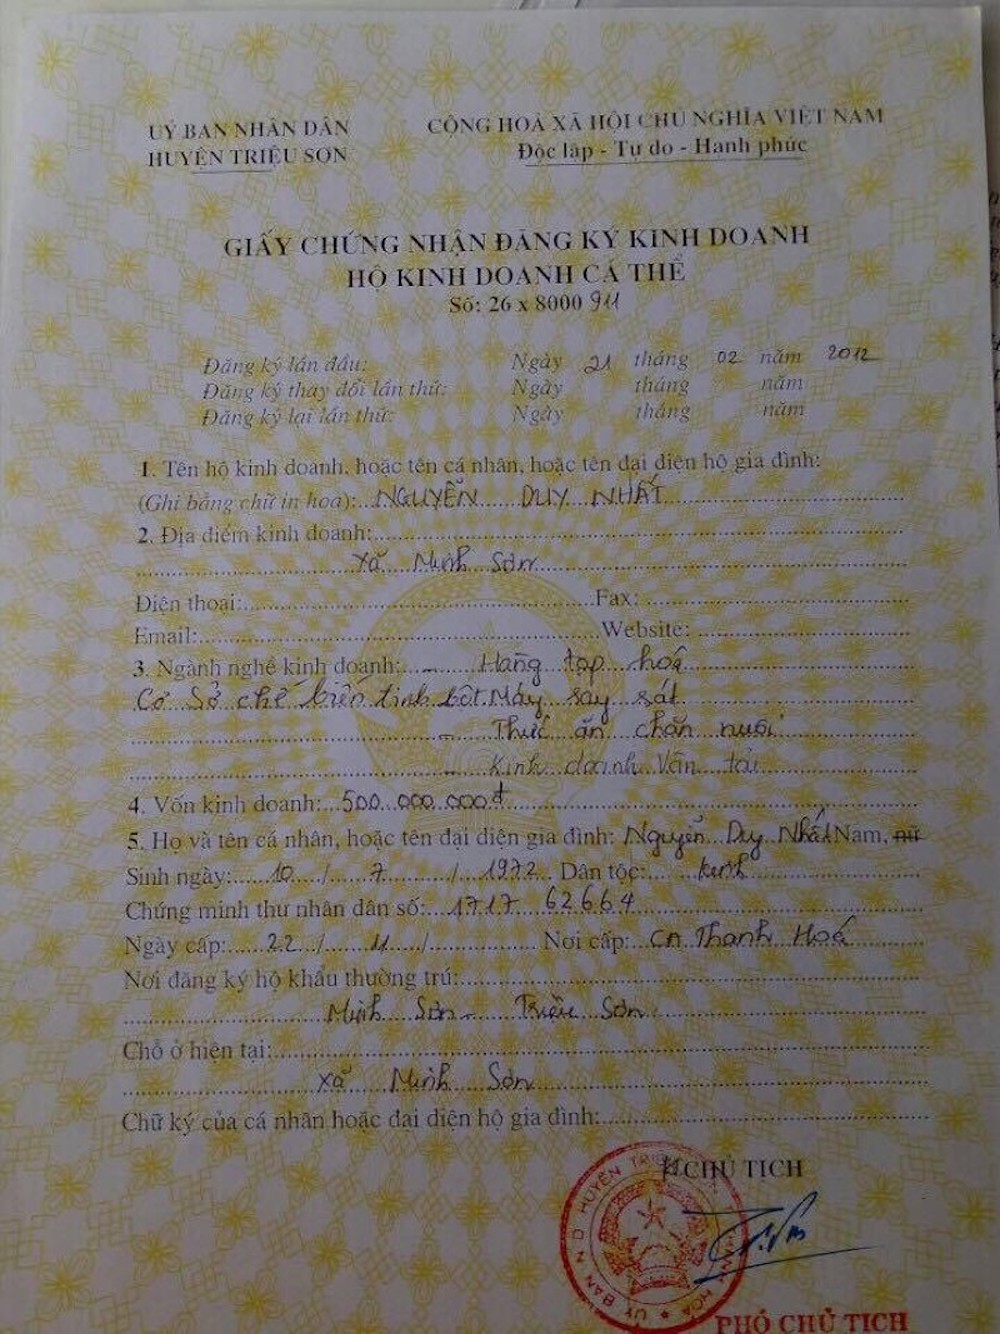 UỶ BAN NHÂN DÂN
HUYỆN TRIỆU SƠN
CỘNG HOÀ XÃ HỘI CHỦ NGHĨA VIỆT NAM
Độc lập - Tự do - Hạnh phúc
GIẤY CHỨNG NHẬN ĐĂNG KÝ KINH DOANH
HỘ KINH DOANH CÁ THỂ
Số: 26 x 8000 911
Đăng ký lần đầu: Ngày 21 tháng 02 năm 2012
Đăng ký thay đổi lần thứ: Ngày tháng năm
Đăng ký lại lần thứ: Ngày tháng năm
1. Tên hộ kinh doanh, hoặc tên cá nhân, hoặc tên đại diện hộ gia đình:
(Ghi bằng chữ in hoa): NGUYỄN DUY NHẤT
2. Địa điểm kinh doanh:
Xã Minh Sơn
Điện thoại: Fax:
Email: Website:
3. Ngành nghề kinh doanh: - Hàng tạp hoá
Cơ Sở chế biến tinh bột. Máy say sát
- Thức ăn chăn nuôi
- Kinh doanh Vận tải
4. Vốn kinh doanh: 500.000.000đ
5. Họ và tên cá nhân, hoặc tên đại diện gia đình: Nguyễn Duy Nhất Nam, nữ
Sinh ngày: 10 / 7 / 1972. Dân tộc: Kinh
Chứng minh thư nhân dân số: 1717 62664
Ngày cấp: 22 / 11 / Nơi cấp: CA Thanh Hoá
Nơi đăng ký hộ khẩu thường trú:
Minh Sơn - Triệu Sơn
Chỗ ở hiện tại:
Xã Minh Sơn
Chữ ký của cá nhân hoặc đại diện hộ gia đình:
CHỦ TỊCH
PHÓ CHỦ TỊCH